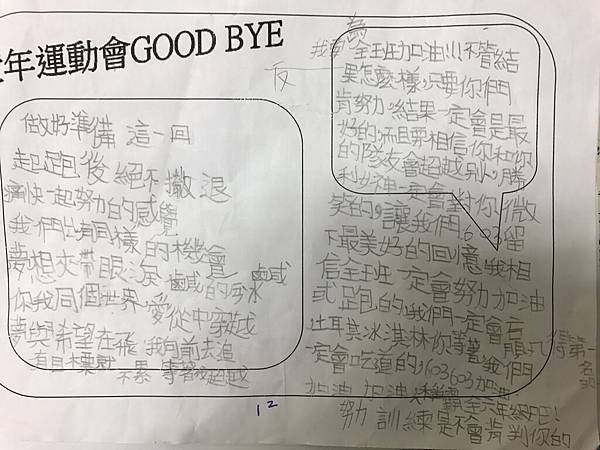 年運動會GOOD BYE
做好準備 這一回
起跑後絕不撤退
痛快一起努力的感覺
我們出有同樣的機會
夢想夾帶眼淚 鹹鹹的汗水
你我同個世界 愛從中穿越
夢與希望在飛 我向前去追
有目標就不累 等著我超越
我要為全班加油!!!不管結
果怎麼樣,只要你們
肯努力,結果一定會是最
好的,而且要相信你和你
的隊友會超越別人,勝
利女神一定會對你微
笑的,讓我們603留
下最美好的回憶,我相
信全班一定會努力加油
跑的,我們一定會
土耳其冰淇淋你等著,我們
一定會吃道的,603603加油
得第一名
加油 加油 全六年級吧!
努力訓練是不會背判你的
12